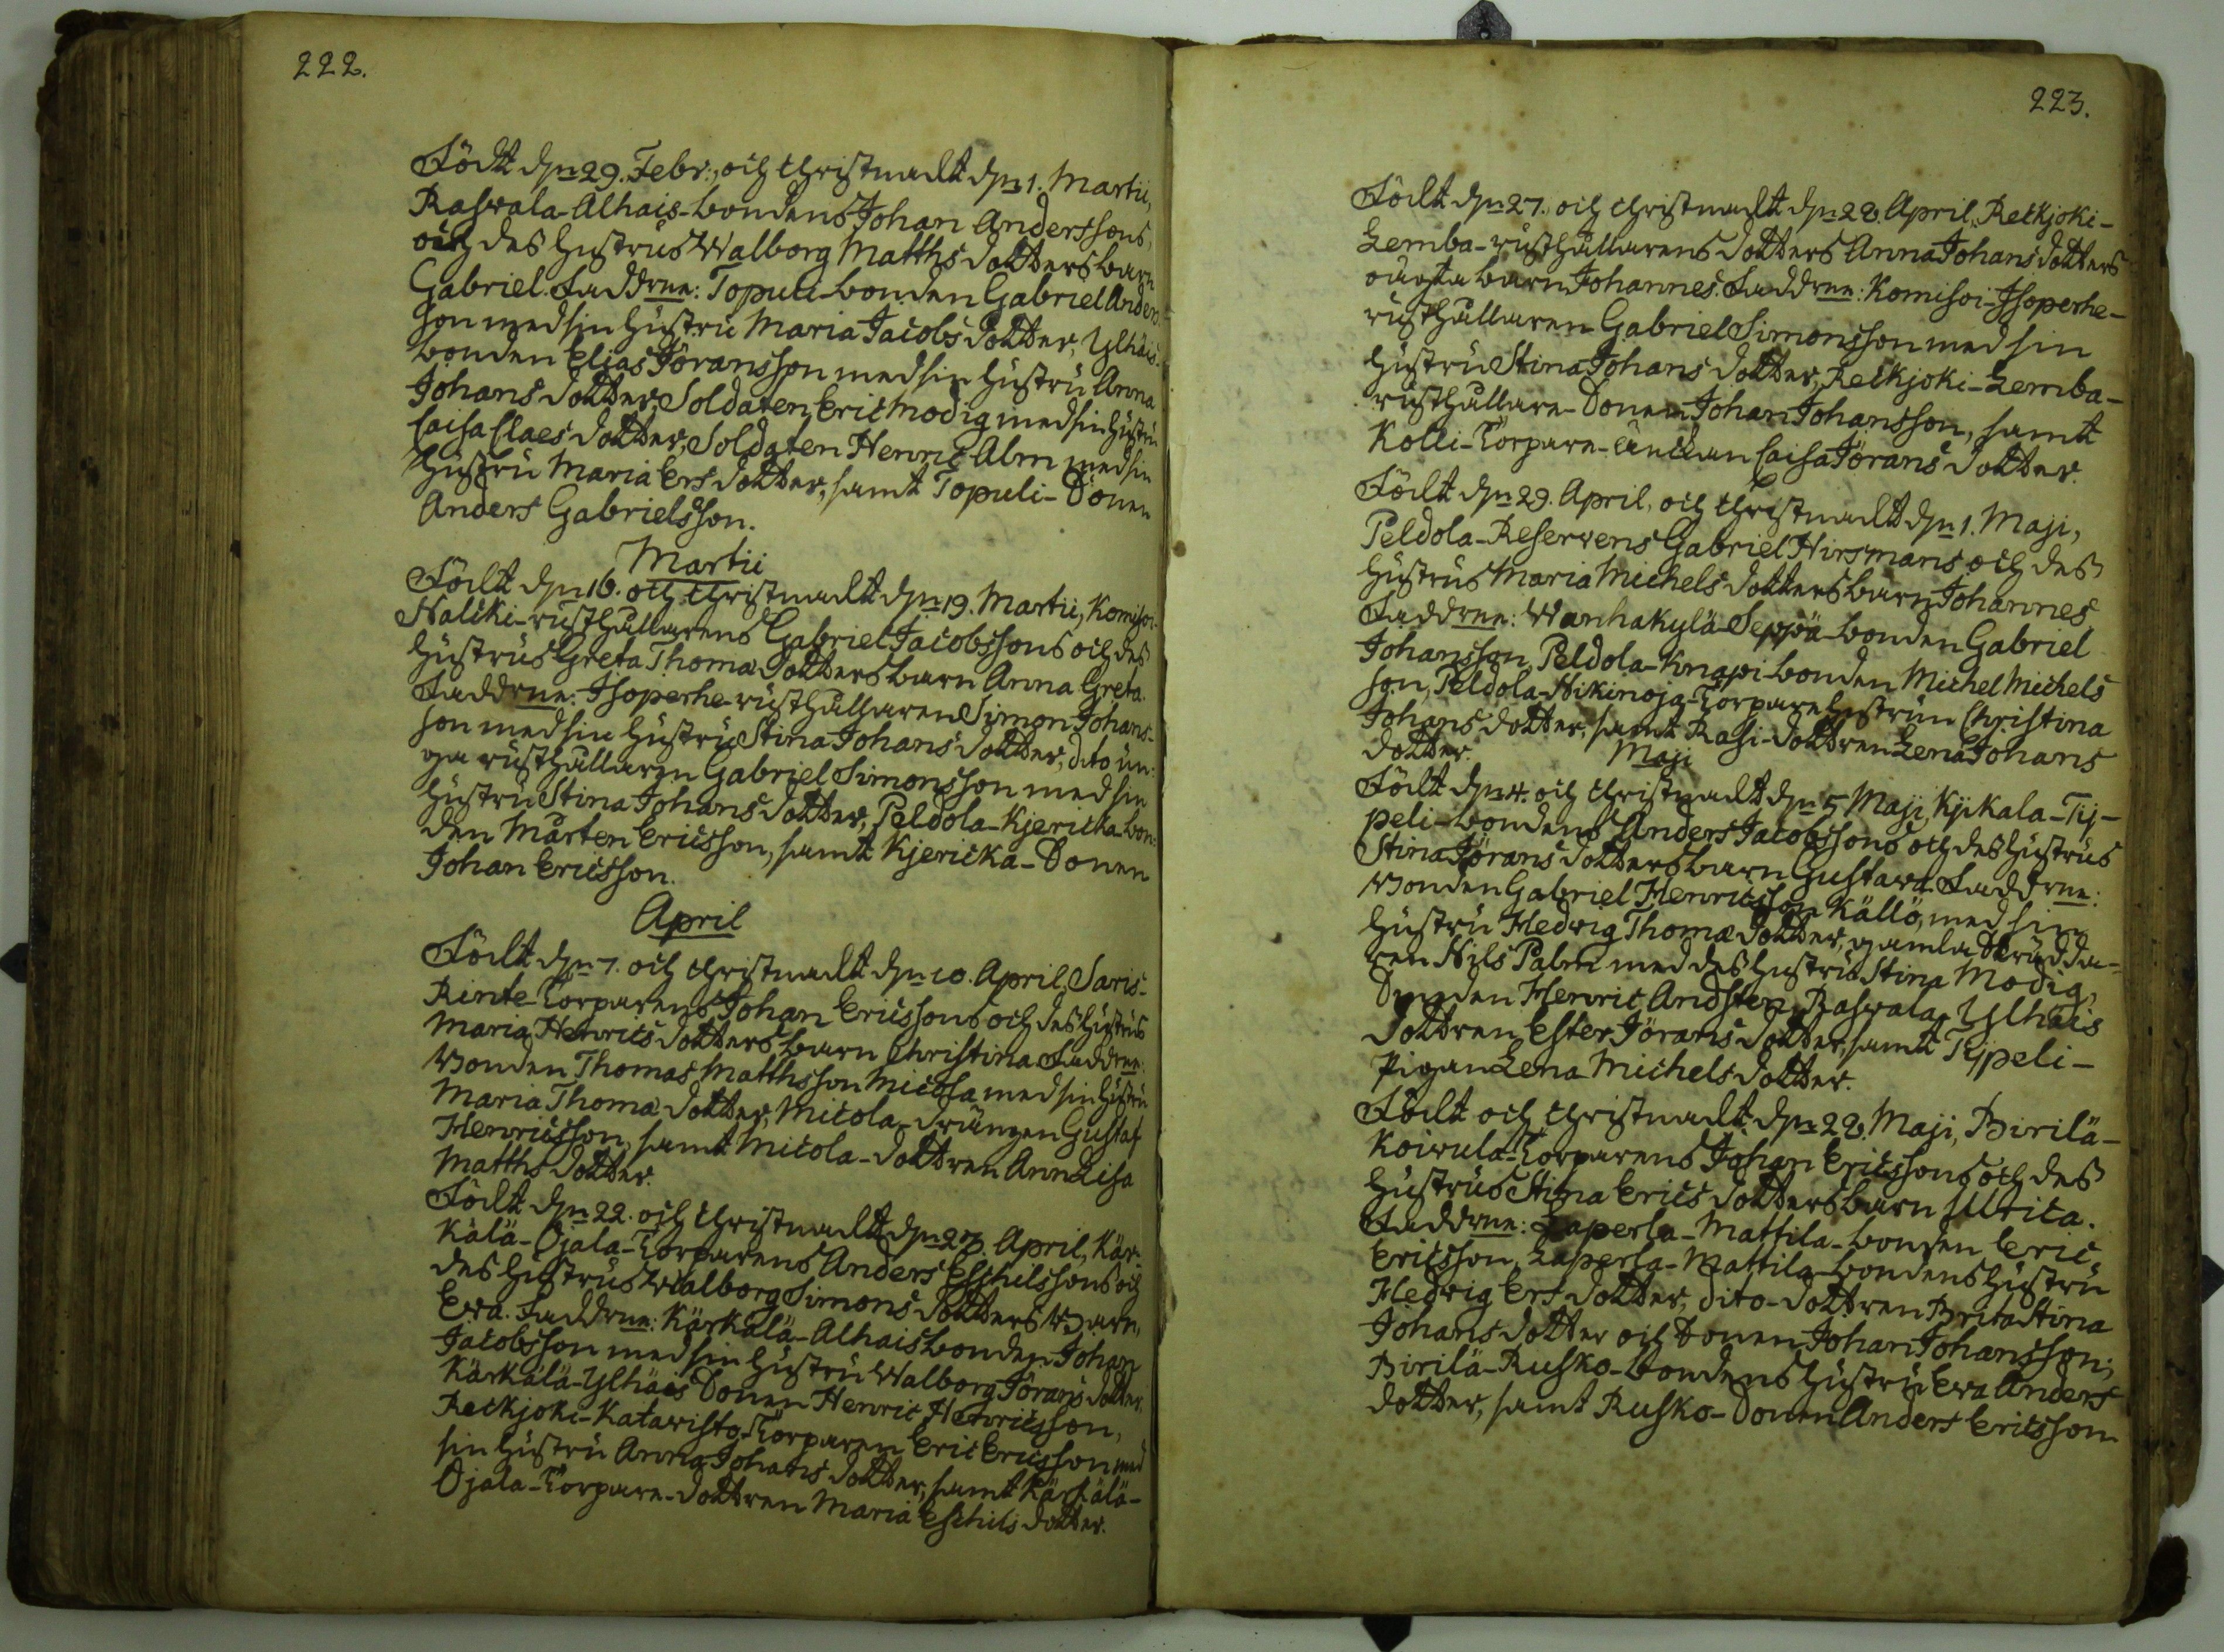 222.
Födt den 29. Febr:, och Christnadt den 1. Martii,
Raswala-Alhais-bondens Johan Anderssons,
och des hustrus Walborg Matths dotters barn
Gabriel. Faddrne: Topuli-bonden Gabriel Anders
son med sin hustru Maria Jacobs dotter, Ylhäis-
bonden Elias Jöransson med sin hustru Anna
Johans dotter, Soldaten Eric Modig med sin hustru
Caisa Claes dotter, Soldaten Henric Alm med sin
hustru Maria Ers dotter, samt Topuli-Sonen
Anders Gabrielsson.
Martii
Födt den 16. och Christnadt den 19. Martii, Komisoi-
Nalcki-rusthållarens Gabriel Jacobssons och des
hustrus Greta Thomæ dotters barn Anna Greta.
Faddrne: Isoperhe-rusthållaren Simon Johans-
son med sin hustru Stina Johans dotter, dito un-
ga rusthållaren Gabriel Simonsson med sin
hustru Stina Johans dotter, Peldola-Kjericka-bon-
den Mårten Ericsson, samt Kjericka-Sonen
Johan Ericsson.
April
Födt den 7. och Christnadt den 10. April, Saris-
Rinte-Torparens Johan Ericssons och des hustrus
Maria Henrics dotters barn Christina Faddrne:
Bonden Thomas Matthsson Micola med sin hustru
Maria Thomæ dotter, Micola-drängen Gustaf
Henricsson, samt Micola-dottren Ann Lisa
Matths dotter.
Födt den 22. och Christnadt den 23. April, Kär-
kälä-Ojala-Torparens Anders Eschilssons och
des hustrus Walborg Simons dotters Barn,
Ewa. Faddrne: Kärkälä-Alhaisbonden Johan
Jacobsson med sin hustru Walborg Jörans dotter,
Kärkälä-Ylhäis Sonen Henric Henricsson,
Retkjoki-Katawisto-Torparen Eric Ericsson med
sin hustru Anna Johans dotter, samt Kärkälä-
Ojala-Torpare-dottren Maria Eschils dotter.
223.
Födt den 27. och Christnadt den 28. April, Retkjoki-
Lemba-rusthållarens dotters Anna Johans dotters
oägta barn Johannes. Faddrne: Komisoi-Isoperhe-
rusthållaren Gabriel Simonsson med sin
hustru Stina Johans dotter, Retkjoki-Lemba-
rusthållare-Sonen Johan Johansson, samt
Kolli-Torpare-änckan Caisa Jörans dotter.
Födt den 29. April, och Christnadt den 1. Maji,
Peldola-Reservens Gabriel Hirsmans och des
hustrus Maria Michels dotters barn Johannes
Faddrne: Wanhakylä-Seppä-bonden Gabriel
Johansson, Peldola-Knapi-bonden Michel Michels
son, Peldola-Hikinoja-Torpare hustrun Christina
Johans dotter, samt Rasi-dottren Lena Johans
dotter.
Maji
Födt den 4. och Christnadt den 5 Maji, Kjikala-Tij-
peli-bondens Anders Jacobssons och des hustrus
Stina Jörans dotters barn Gustava. Faddrne:
Bonden Gabriel Henricsson Källö, med sin
hustru Hedvig Thomæ dotter, gamla Skrädda-
ren Nils Palm med des hustru Stina Modig,
Smeden Henric Andsten, Raswala-Ylhais
dottren Ester Jörans dotter, samt Tijpeli-
Pigan Lena Michels dotter.
Födt och Christnadt den 28. Maji, Birilä-
Koiwula-Torparens Johan Ericssons och des
hustrus Stina Erics dotters barn Ulrica.
Faddrne: Laperla-Mattila-bonden Eric
Ericsson, Laperla-Mattila-bondens hustru
Hedvig Ers dotter, dito-dottren Brita Stina
Johans dotter och Sonen Johan Johansson;
Birilä-Rusko-bondens hustru Ewa Anders
dotter, samt Rusko-Sonen Anders Ericsson